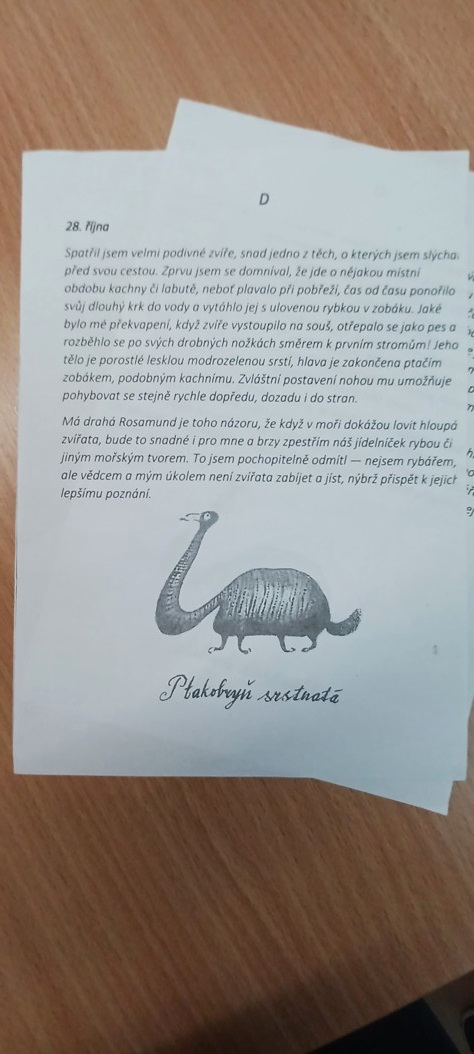 D
28. října
Spatřil jsem velmi podivné zvíře, snad jedno z těch, o kterých jsem slýcha
před svou cestou. Zprvu jsem se domníval, že jde o nějakou místní
obdobu kachny či labutě, neboť plavalo při pobřeží, čas od času ponořilo
svůj dlouhý krk do vody a vytáhlo jej s ulovenou rybkou v zobáku. Jaké
bylo mé překvapení, když zvíře vystoupilo na souš, otřepalo se jako pes a
rozběhlo se po svých drobných nožkách směrem k prvním stromům! Jeho
tělo je porostlé lesklou modrozelenou srstí, hlava je zakončena ptačím
zobákem, podobným kachnímu. Zvláštní postavení nohou mu umožňuje
pohybovat se stejně rychle dopředu, dozadu i do stran.
Má drahá Rosamund je toho názoru, že když v moři dokážou lovit hloupá
zvířata, bude to snadné i pro mne a brzy zpestřím náš jídelníček rybou či
jiným mořským tvorem. To jsem pochopitelně odmítl — nejsem rybářem,
ale vědcem a mým úkolem není zvířata zabíjet a jíst, nýbrž přispět k jejich
lepšímu poznání.
Ptakobryň srstnatá